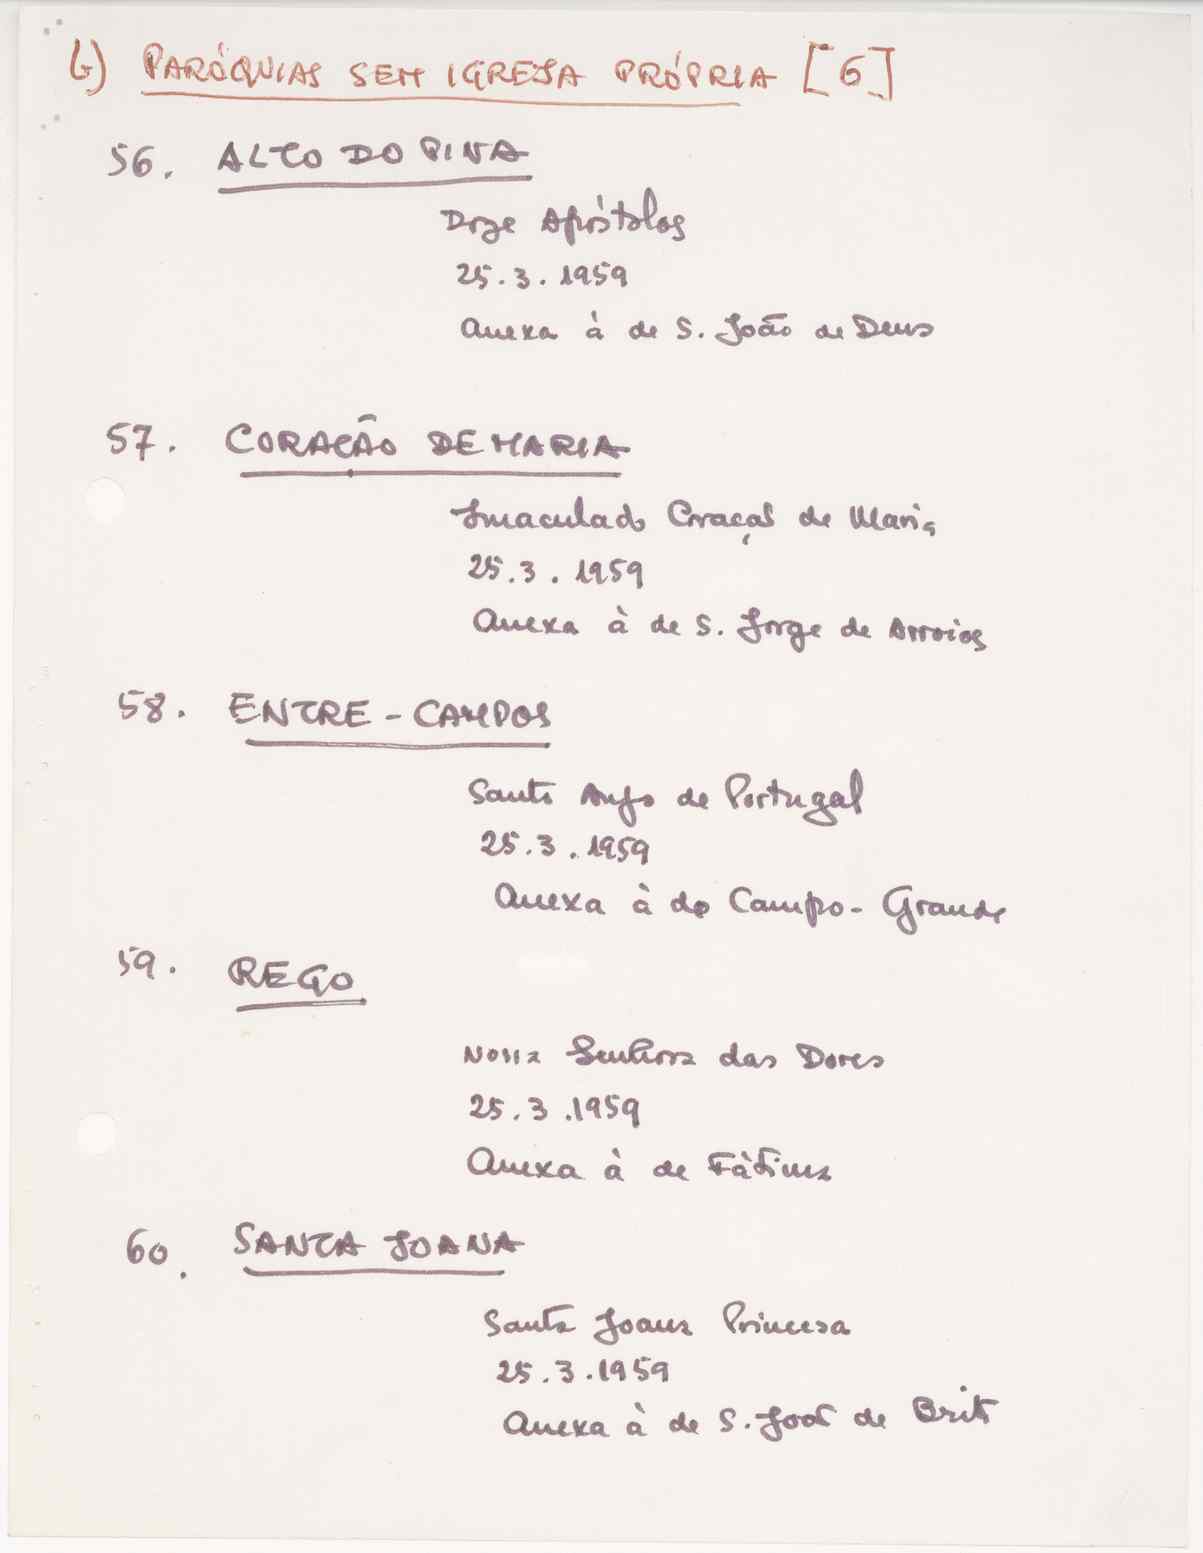 b) PARÓQUIAS SEM IGREJA PRÓPRIA [6]
56. ALTO DO PINA
Doze Apóstolos
25.3.1959
Anexa à de S. João de Deus
57. CORAÇÃO DE MARIA
Imaculado Coração de Maria
25.3.1959
Anexa à de S. Jorge de Arroios
58. ENTRE-CAMPOS
Santo Anjo de Portugal
25.3.1959
Anexa à do Campo-Grande
59. REGO
Nossa Senhora das Dores
25.3.1959
Anexa à de Fàtima
60. SANTA JOANA
Santa Joana Princesa
25.3.1959
Anexa à de S. João de Brito